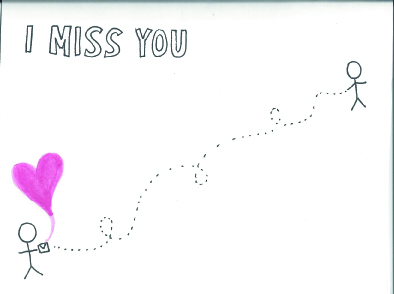 I MISS YOU